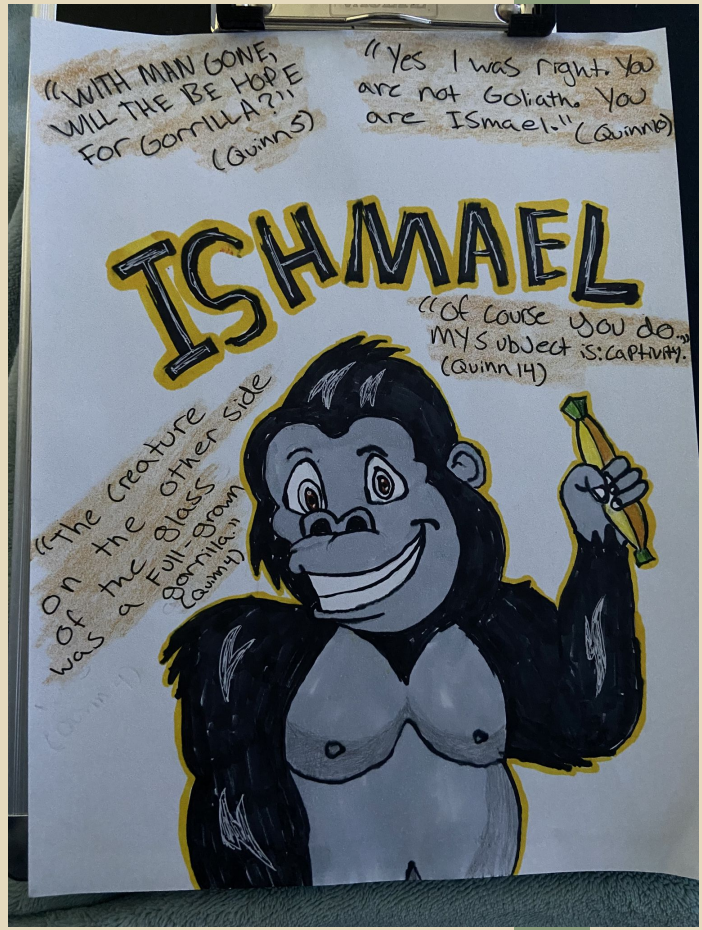 "WITH MAN GONE,
WILL THE BE HOPE
FOR GORRILLA?"
(Quinn 5)
"Yes I was right. You
are not Goliath. You
are ISmael." (Quinn 16)
ISHMAEL
"Of course you do.
MY SUbJect is: captivity."
(Quinn 14)
"The Creature
on the other side
of the glass
was a Full-grown
gorrilla."
(Quinn 4)
(Quinn 4)